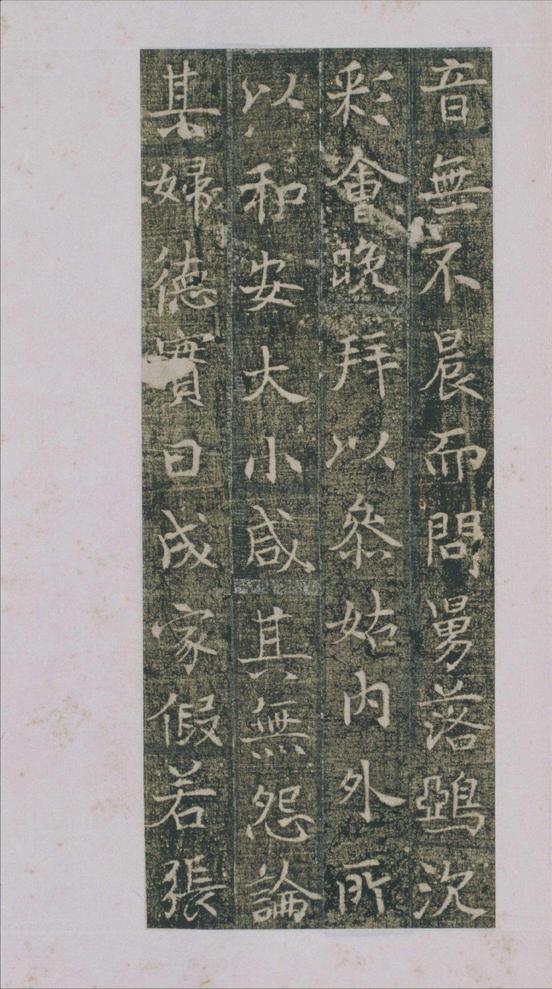 音無不晨而問舅落鵶次
彩會晚拜以叅姑内外所
以和安大小咸其無怨論
其婦德實曰成家假若張